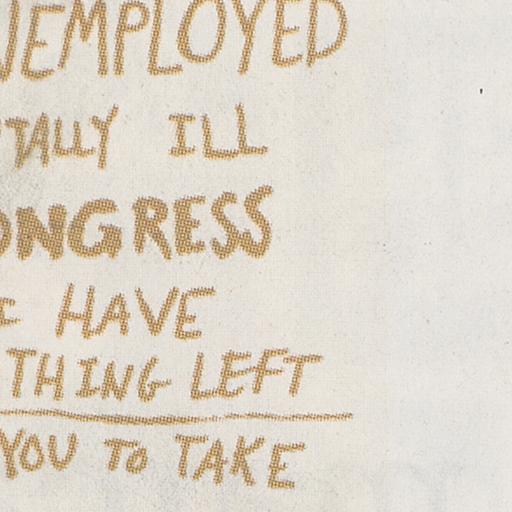 NEMPLOYED
TALLY ILL
ONGRESS
I HAVE
THING LEFT
YOU TO TAKE